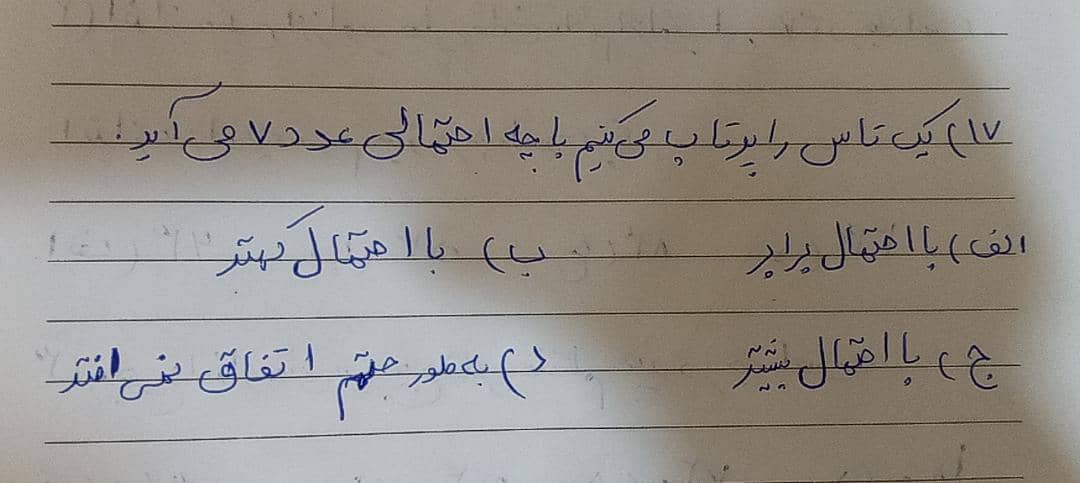 ۱۷) یک تاس را پرتاب می‌کنیم با چه احتمالی عدد ۷ می‌آید؟
الف) با احتمال برابر ب) با احتمال کمتر
ج) با احتمال بیشتر د) به طور حتم اتفاق نمی‌افتد